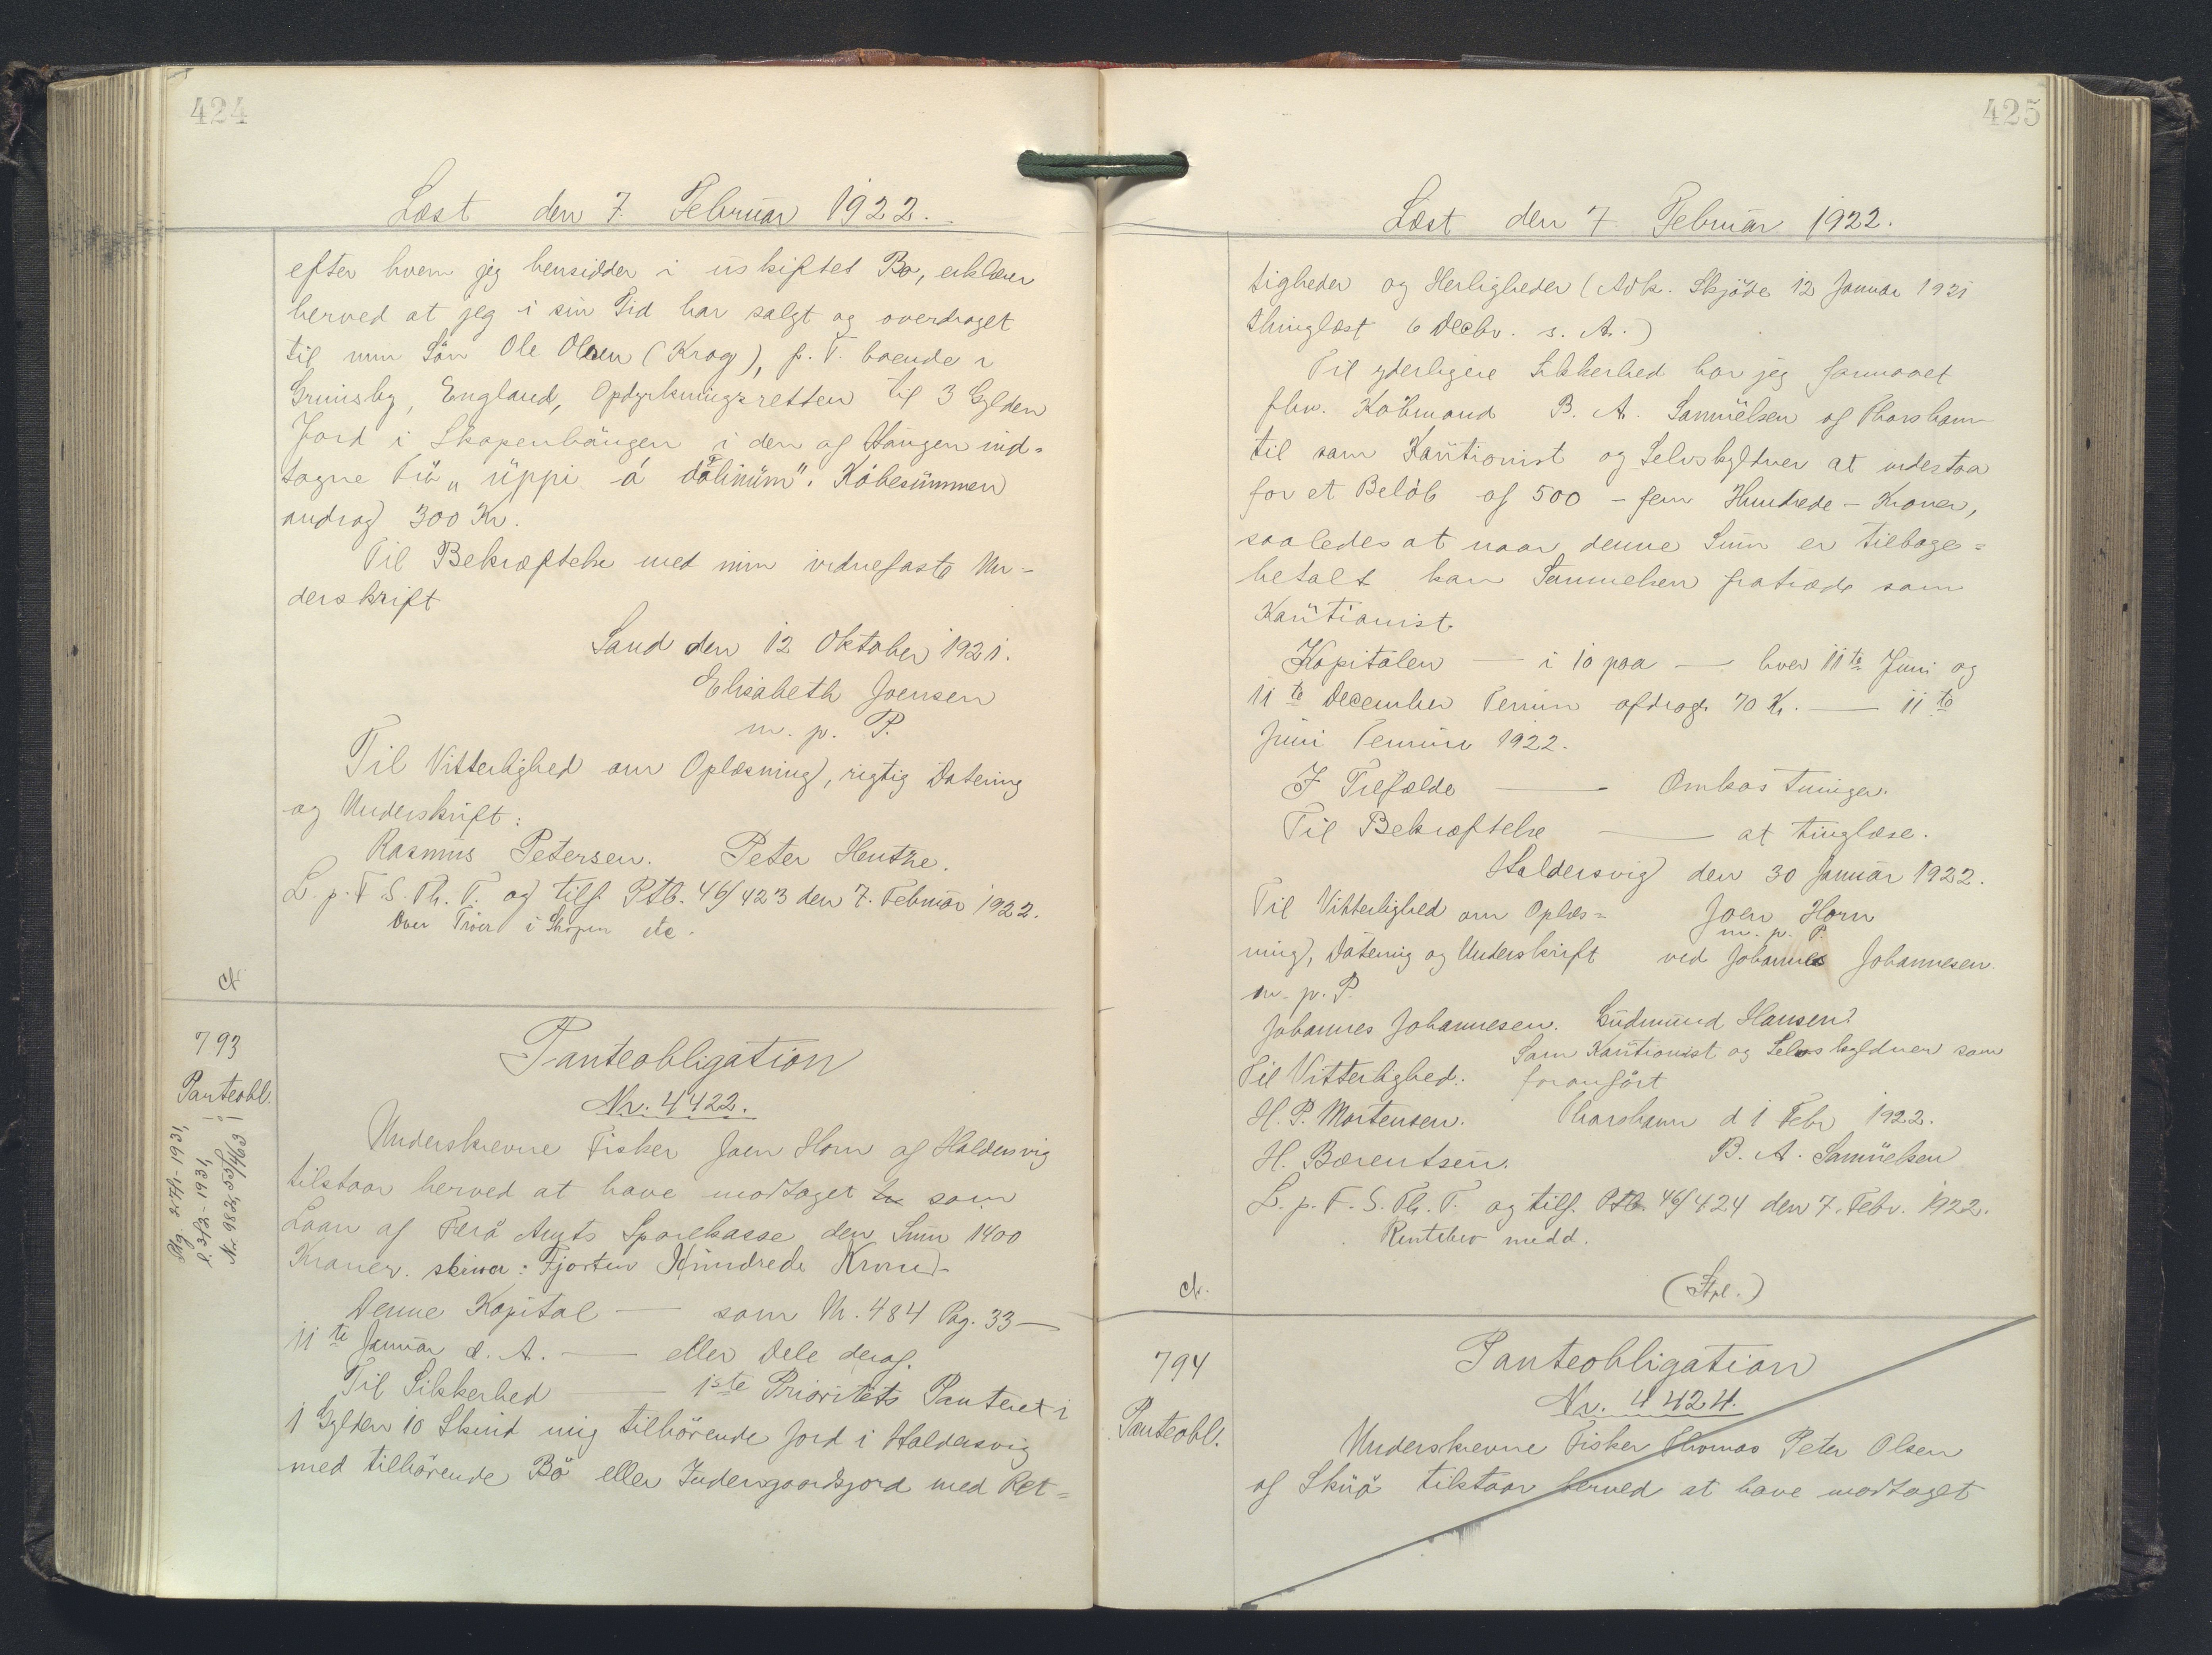 424
Læst den 7. Februar 1922.
efter hvem jeg hensidder i uskiftet Bo, erklærer
herved at jeg i sin Tid har salgt og overdraget
til min Søn Ole Olsen (Krog), p. T. boende i
Grimsby, England, Opdyrkningsretten til 3 Gylden
Jord i Skopenhaugen i den af Haugen ind=
tagne Trö „uppi á dalinum". Købesummen
androg 300 Kr.
Til Bekræftelse med min vidnefaste Un-
derskrift
Sand den 12 Oktober 1921.
Elisabeth Joensen
m. p. P.
Til Vitterlighed om Oplæsning, rigtig Datering
og Underskrift:
Rasmus Petersen. Peter Hentze.
L. p. F. S. Th. T. og tilf. Ptb. 46/423 den 7. Februar 1922.
Over Tröer i Skopen
793
Panteobl.
Panteobligation
Nr. 4422.
Underskrevne Fisker Joen Horn af Haldersvig
tilstaar herved at have modtaget som
Laan af Færø Amts Sparekasse den Sum 1400
Kroner. skriver: Fjorten Hundrede Kroner.
Denne Kapital — som Nr. 484 Pag. 33 —
11te Januar d. A. — eller Dele deraf.
Til Sikkerhed — 1ste Prioritets Panteret i
1 Gylden 10 Skind mig tilhörende Jord i Haldersvig
med tilhörende Bö eller Indersgaardsjord med Ret=
425
Læst den 7 Februar 1922.
tigheder og Herligheder (Adk. Skjöde 12 Januar 1921
thinglæst 6 Decbr. s. A.)
Til yderligere Sikkerhed har jeg formaaet
fhv. Købmand B. A. Samuelsen af Thorshavn
til som Kautionist og Selvskyldner at indestaa
for et Belöb af 500 – fem Hundrede – Kroner,
saaledes at naar denne Sum er tilbage=
betalt kan Samuelsen fratræde som
Kautionist.
Kapitalen — i 10 paa — hver 11te Juni og
11te December Termin afdrag 70 Kr. — 11te
Juni Termin 1922.
I Tilfælde — Omkostninger.
Til Bekræftelse — at tinglæse.
Haldersvig den 30 Januar 1922.
Til Vitterlighed om Oplæs= Joen Horn
m. p. P.
ning, Datering og Underskrift ved Johannes Johannesen
m. p. P.
Johannes Johannesen. Gudmund Hansen.
Som Kautionist og Selvskyldner som
Til Vitterlighed: foranført
H. P. Mortensen. Thorshavn d 1 Febr 1922.
H. Bærentsen. B. A. Samuelsen
L. p. F. S. Th. T. og tilf. Ptb. 46/424 den 7. Febr. 1922.
Rentebev medd.
(Stpl.)
794
Panteobl.
Panteobligation
Nr. 4424.
Underskrevne Fisker Thomas Peter Olsen
af Skuø tilstaar herved at have modtaget